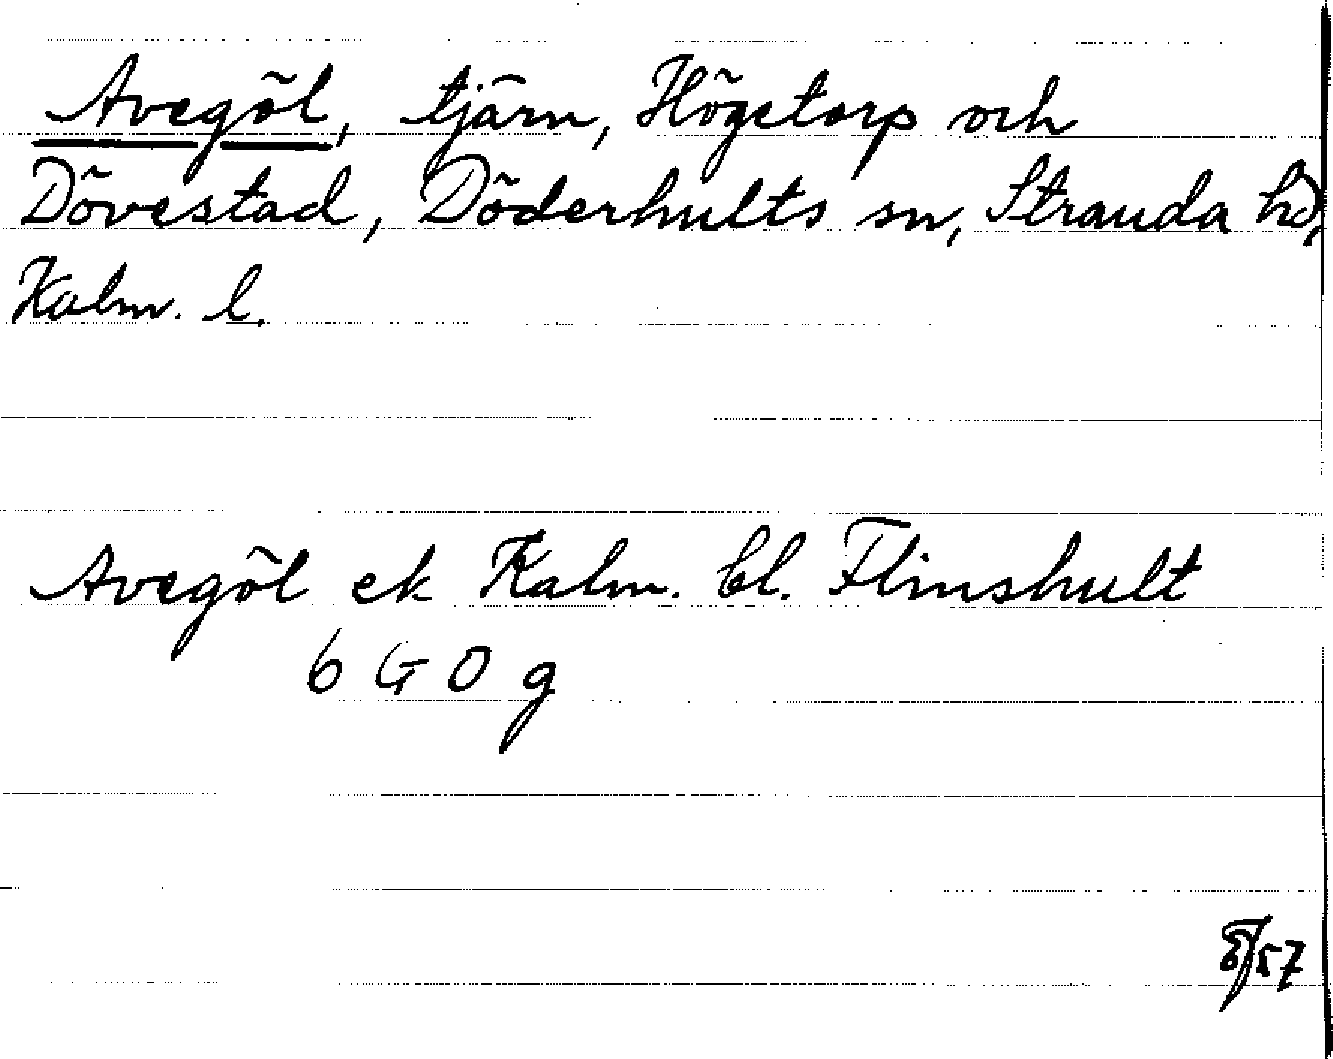 Avegöl, tjärn, Högetorp och
Dövestad, Döderhults sn, Stranda hd,
Kalm. l.
Avegöl ek Kalm. bl. Flinshult
6 G O g